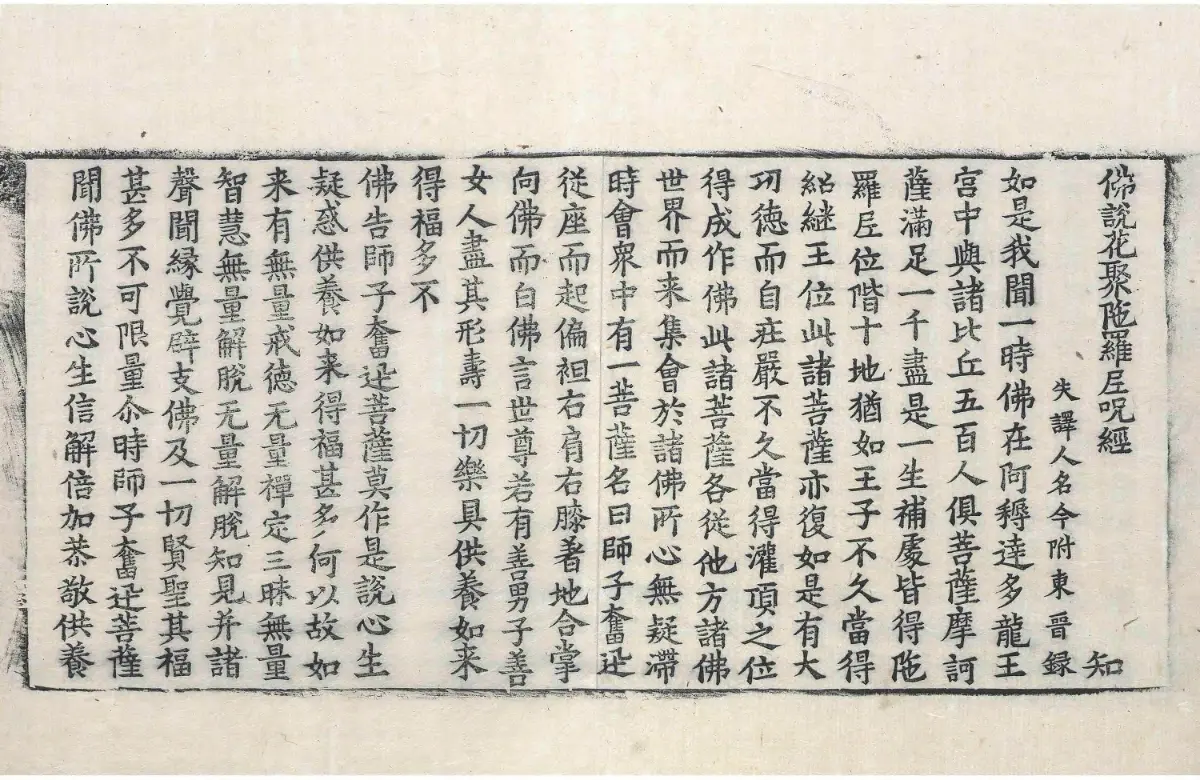 佛說花聚陁羅尼呪經 知
失譯人名今附東晉録
如是我聞一時佛在阿耨達多龍王
宫中與諸比丘五百人俱菩薩摩訶
薩滿足一千盡是一生補處皆得陁
羅尼位階十地猶如王子不久當得
紹継王位此諸菩薩亦復如是有大
功徳而自㽵嚴不久當得灌頂之位
得成作佛此諸菩薩各從他方諸佛
世界而来集會於諸佛所心無疑滯
時會衆中有一菩薩名曰師子奮迅
從座而起偏袒右肩右膝著地合掌
向佛而白佛言世尊若有善男子善
女人盡其形壽一切樂具供養如来
得福多不
佛告師子奮迅菩薩莫作是説心生
疑惑供養如来得福甚多何以故如
来有無量戒徳无量禪定三昧無量
智慧無量解脫无量解脫知見并諸
聲聞縁覺辟支佛及一切賢聖其福
甚多不可限量尒時師子奮迅菩薩
聞佛所説心生信解倍加恭敬供養